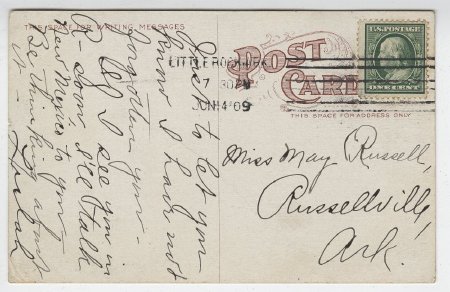 THIS SPACE FOR WRITING MESSAGES
Just to let you
know I had not
forgotten you -
I'll see you in
R - down I'll talk
New Mexico to you
Be thinking about
it -
POST
CARD
THIS SPACE FOR ADDRESS ONLY
U.S. POSTAGE
ONE CENT
LITTLE ROCK, ARK.
7 30
JUN 14 09
Miss May Russell,
Russellville,
Ark.